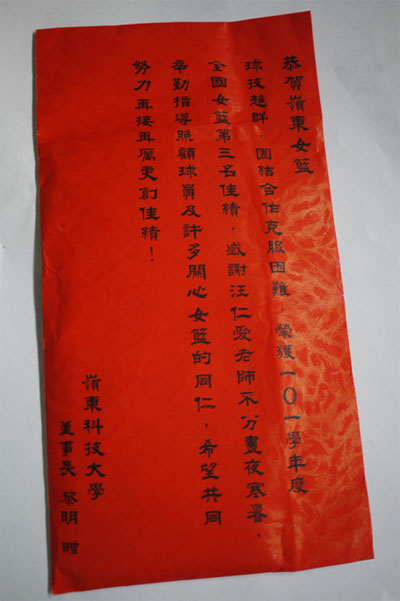 恭賀嶺東女籃
球技超群，團結合作克服困難，榮獲一〇一學年度
全國女籃第三名佳績，感謝汪仁愛老師不分晝夜寒暑，
辛勤指導照顧球員及許多關心女籃的同仁，希望共同
努力再接再厲更創佳績！
嶺東科技大學
董事長 黎明 贈